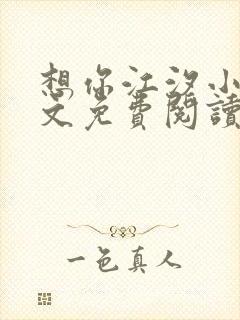 想你江汐小
文免費閱讀
一色真人